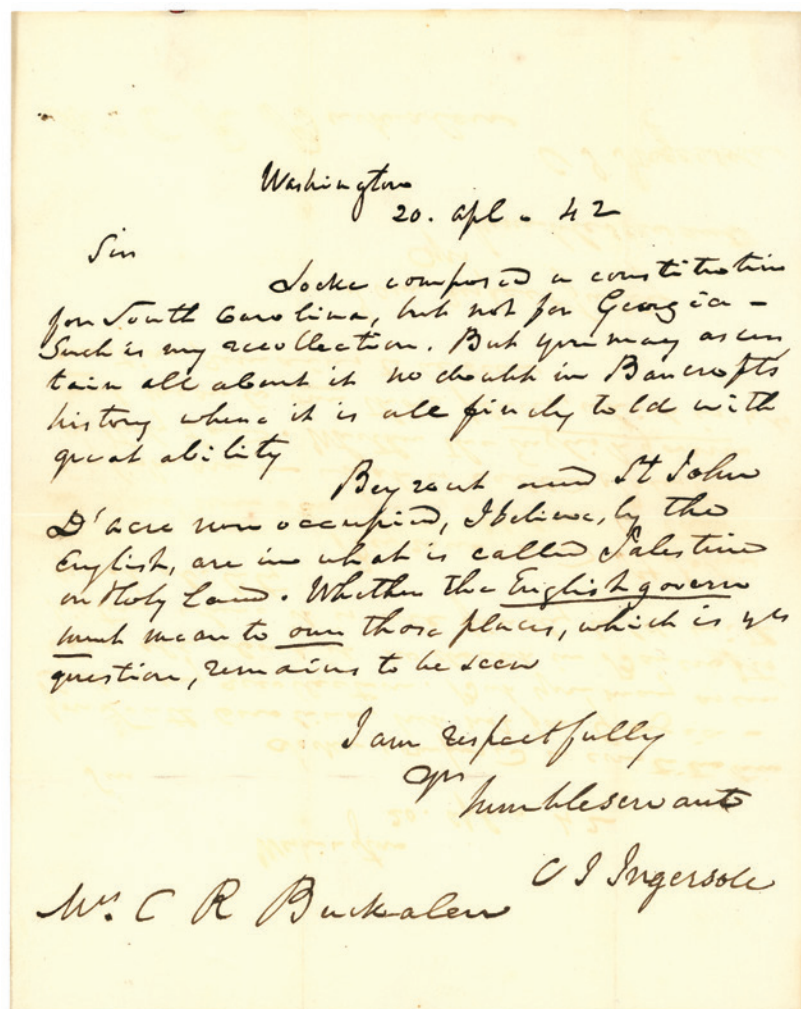 Washington
20. apl - 42
Sir
Locke composed a constitution
for South Carolina, but not for Georgia -
Such is my recollection. But you may ascer
tain all about it no doubt in Bancrofts
history where it is all finely told with
great ability
Beyrout and St John
D'acre now occupied, I believe, by the
English, are in what is called Palestine
or Holy Land. Whether the English govern
ment mean to own those places, which is yr
question, remains to be seen
I am respectfully
yr
humble servant
C J Ingersoll
Mr. C R Buckalew